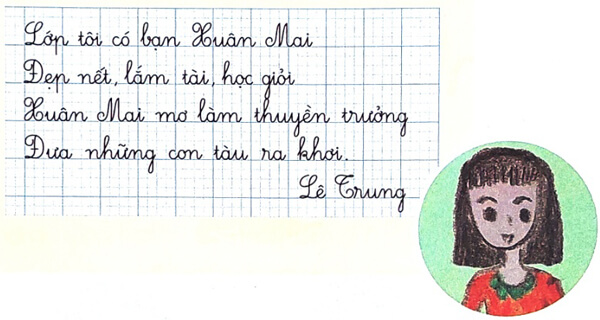 Lớp tôi có bạn Xuân Mai
Đẹp nết, lắm tài, học giỏi
Xuân Mai mơ làm thuyền trưởng
Đưa những con tàu ra khơi.
Lê Trung